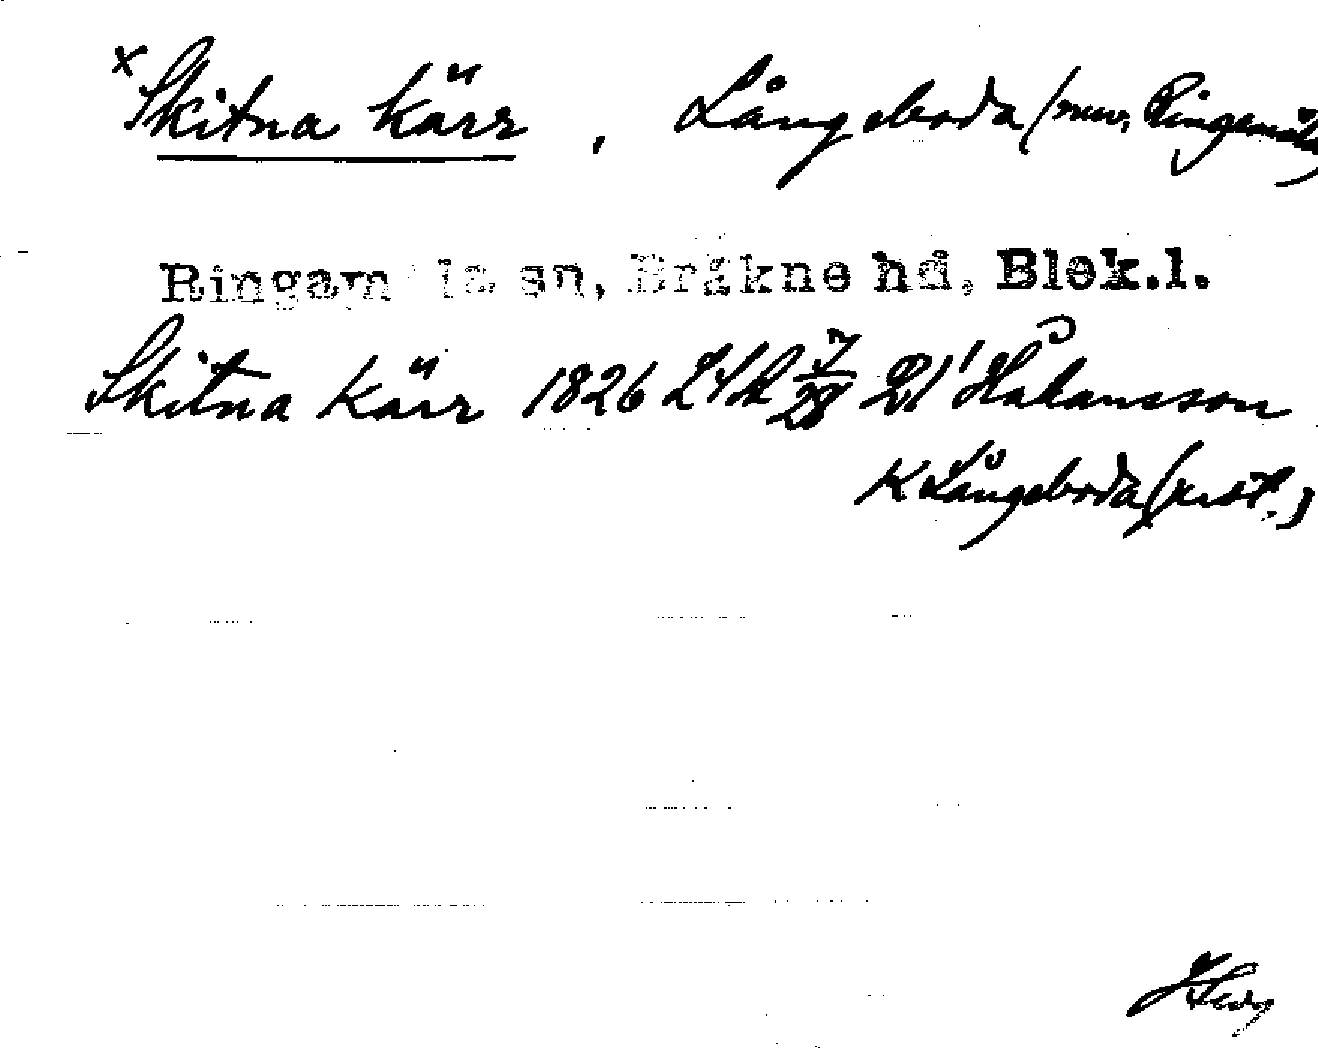 x Skitna Kärr, Långeboda (nuv. Ringamåla)
Ringam la sn, Bräkne hd, Blek.l.
Skitna Kärr 1826 LSA Håkansson
K Långeboda (rest.)